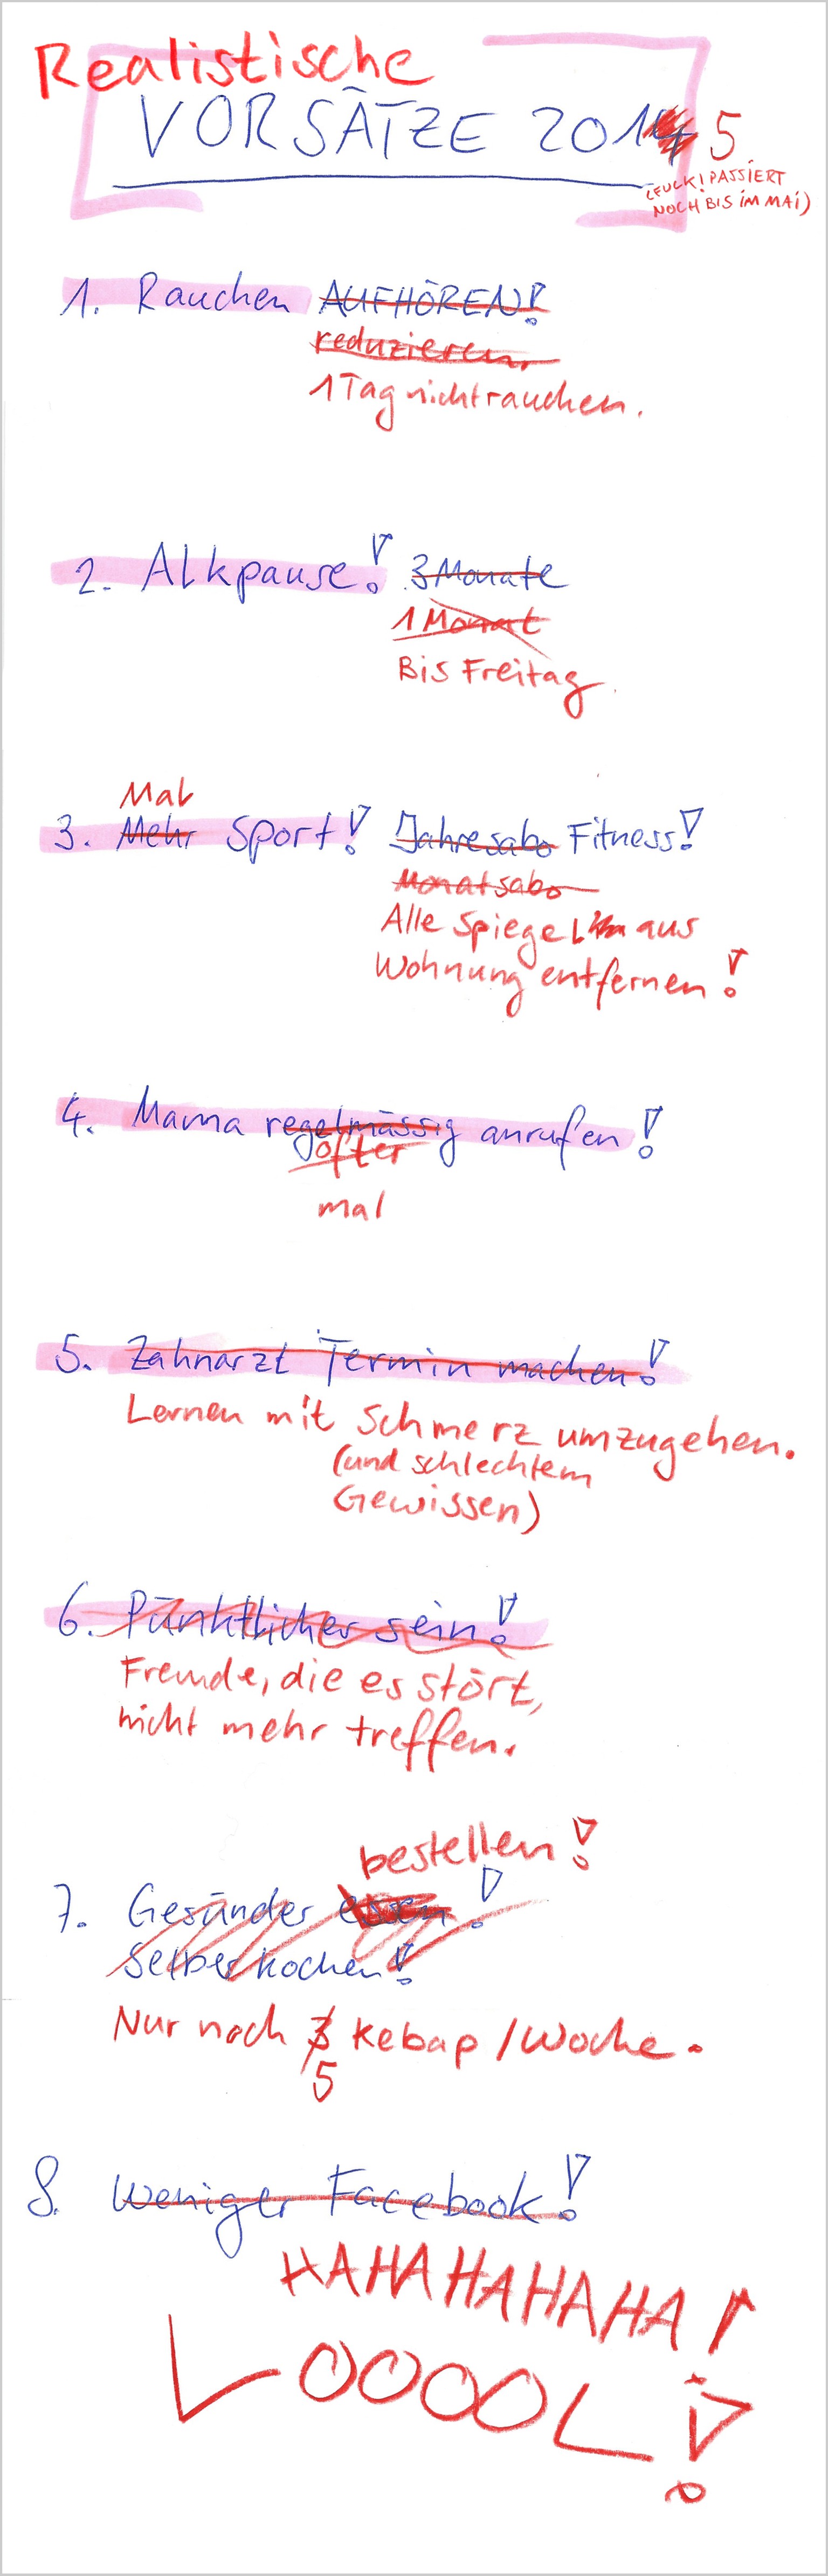 Realistische
VORSÄTZE 2014 5
(FUCK! PASSIERT
NOCH BIS IM MAI)
1. Rauchen AUFHÖREN!
reduzieren.
1 Tag nicht rauchen.
2. Alkpause! 3 Monate
1 Monat
Bis Freitag
Mal
3. Mehr Sport! Jahresabo Fitness!
Monatsabo
Alle Spiegel aus
Wohnung entfernen!
4. Mama regelmässig anrufen!
öfter
mal
5. Zahnarzt Termin machen!
Lernen mit Schmerz umzugehen.
(und schlechtem
Gewissen)
6. Pünktlicher sein!
Freunde, die es stört,
nicht mehr treffen.
bestellen!
7. Gesünder essen!
Selber kochen!
Nur noch 3 Kebap/Woche.
5
8. Weniger Facebook!
HAHAHAHAHA!
LOOOOL!